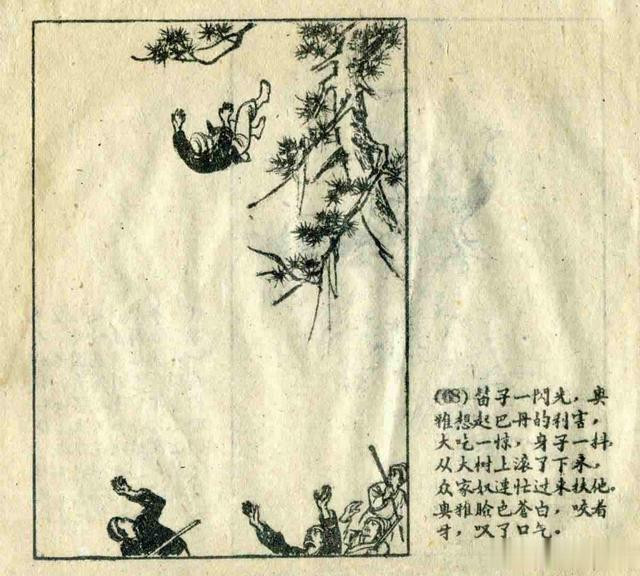 (68) 笛子一閃光，奥
雅想起巴丹的利害，
大吃一惊，身子一抖，
从大树上滚了下来。
众家奴連忙过来扶他。
奥雅脸色蒼白，咬着
牙，叹了口气。